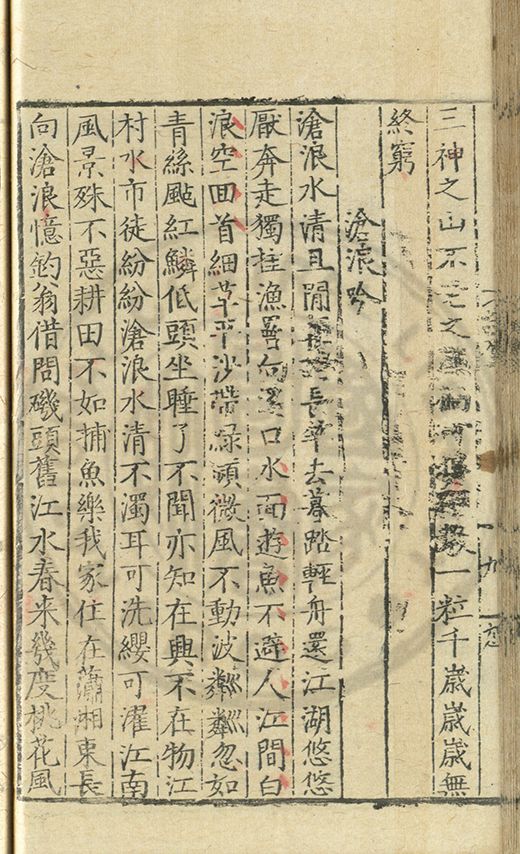 三神之山不之一粒千歲歲歲無
終窮
滄浪吟
滄浪水清且閒長竿去暮踏輕舟還江湖悠悠
厭奔走獨拄漁罾向溪口水面遊魚不避人江間白
浪空囬首細草平沙帶綠蘋微風不動波粼粼忽如
青絲颭紅鱗低頭坐睡了不聞亦知在興不在物江
村水市徒紛紛滄浪水清不濁耳可洗纓可濯江南
風景殊不惡耕田不如捕魚樂我家住在瀟湘東長
向滄浪憶釣翁借問磯頭舊江水春来幾度桃花風